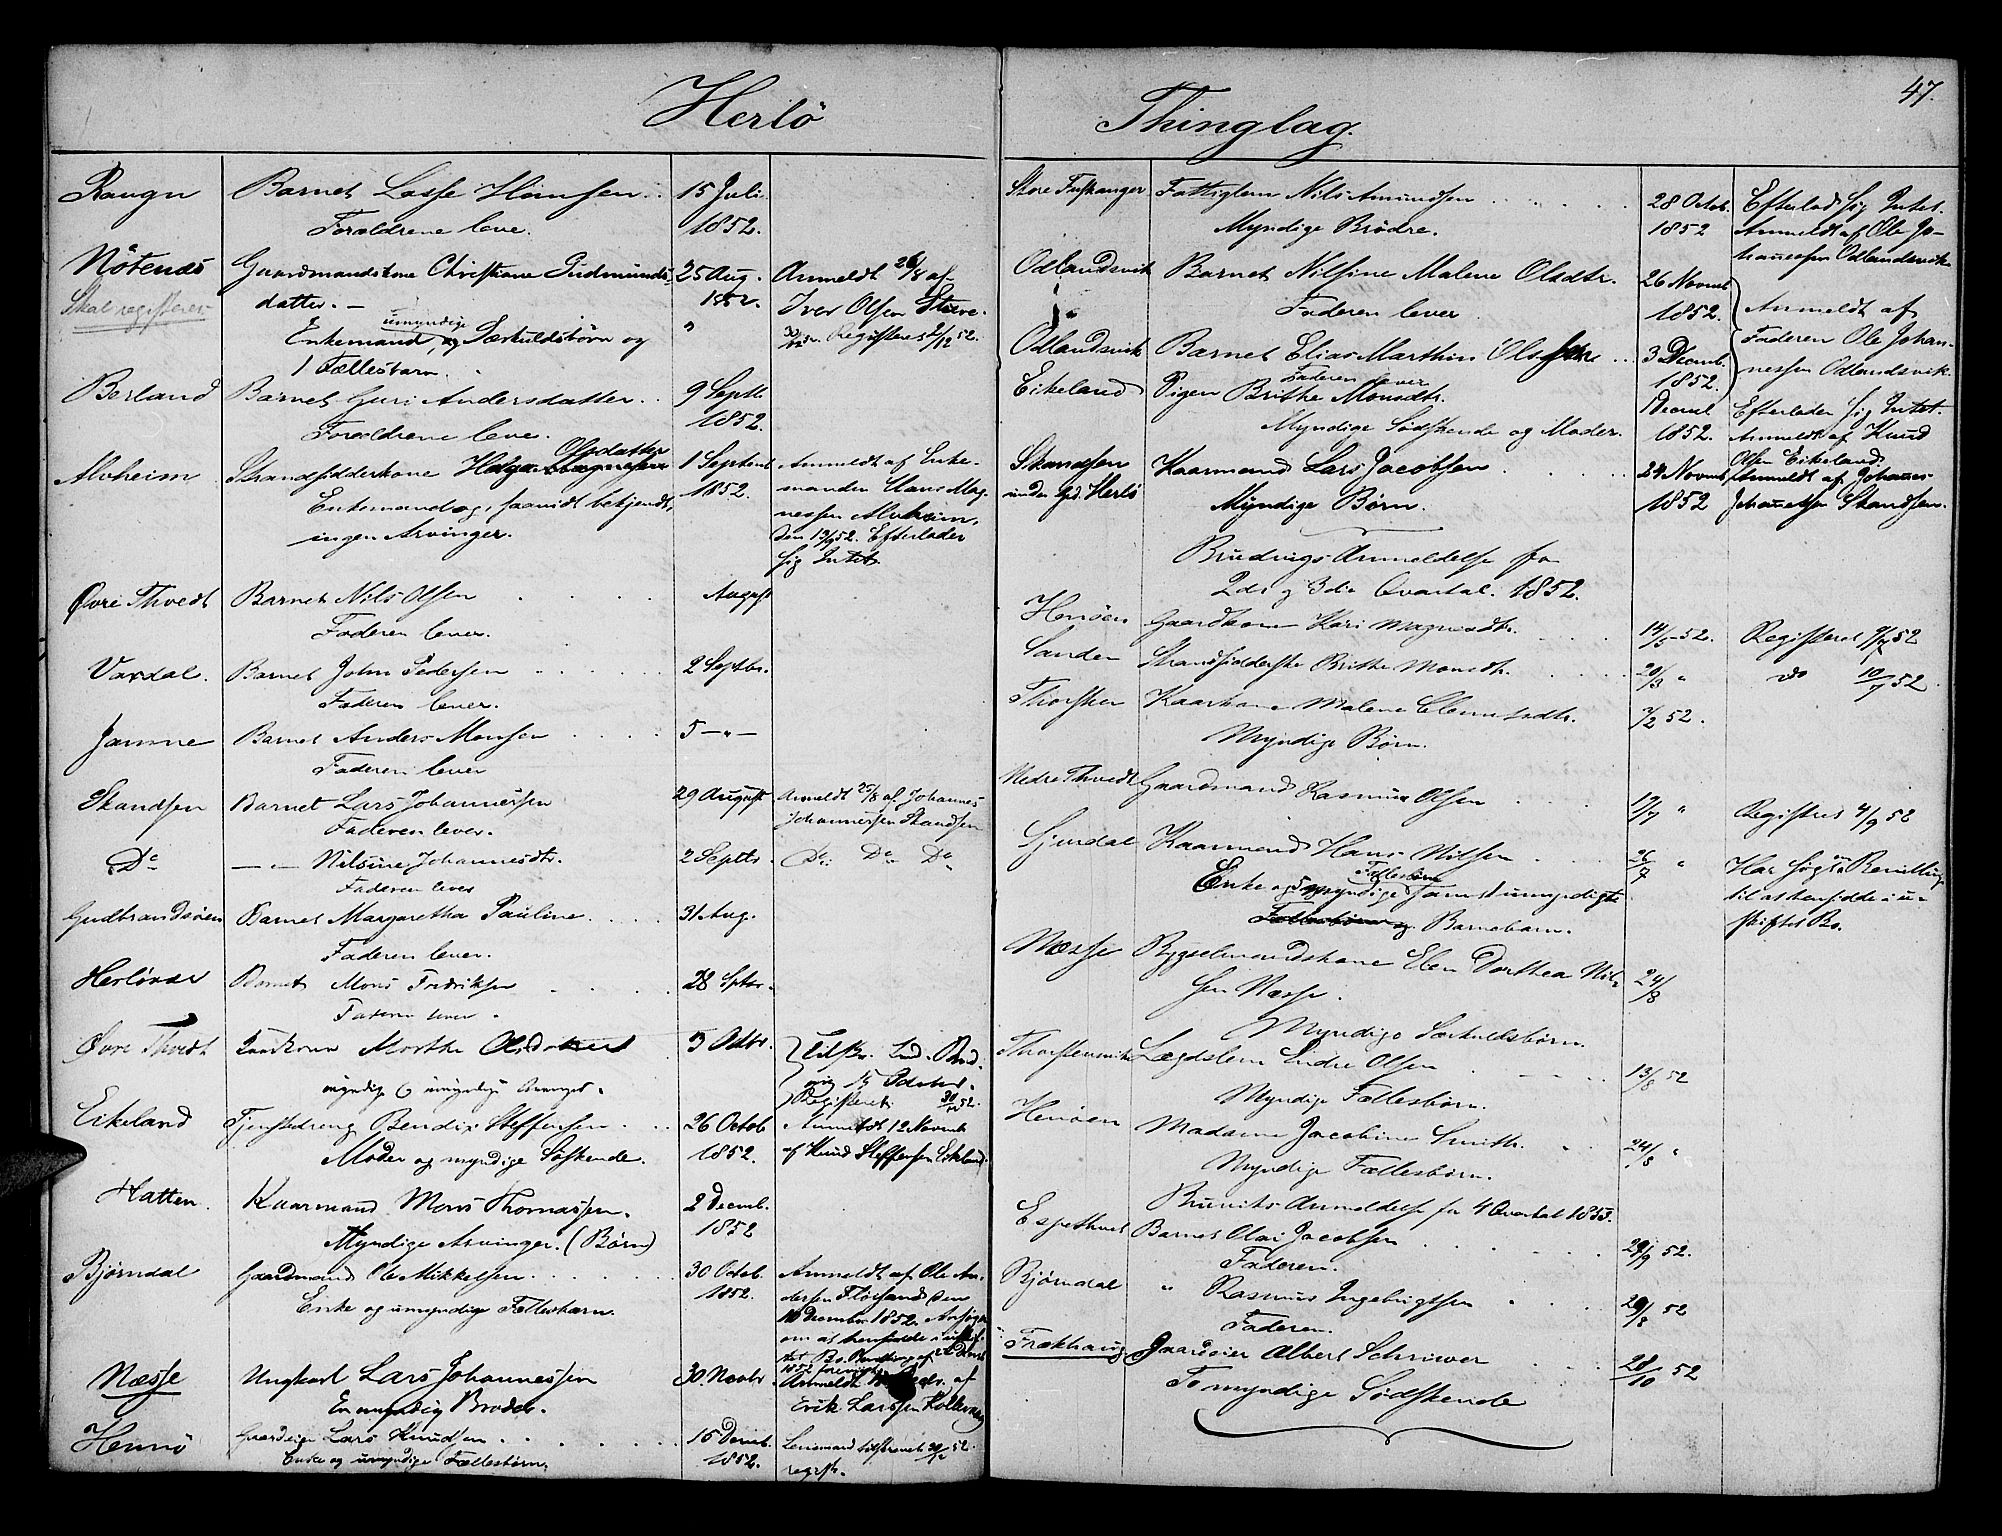 47.
Herlö Thinglag.
Raugn Barnet Lasse Hansen 15 Juli
Forældrene leve. 1852.
Nötenæs Gaardmandskone Christiane Gudmunds- 25 Aug. Anmeldt 26/8 af
Skal registeres datter. — 1852. Iver Olsen
umyndige
Enkemand, og Særkuldsbörn og " Registeret /12 52.
1 Fællesbarn.
Berland Barnet Guri Andersdatter 9 Septb.
Forældrene leve. 1852.
Olsdatter
Alvheim Strandsidderkone Helga 1 Septemb Anmeldt af Enke-
Enkemand og, saavidt bekjendt, 1852. manden Hans Mag-
ingen Arvinger. nessen Alvheim,
den 13/9 52. Efterlader
sig Intet.
Øvre Thvedt Barnet Nils Olsen August
Faderen lever.
Vardal. Barnet John Pedersen 2 Septbr.
Faderen lever.
Jamne Barnet Anders Monsen 5 —"—
Faderen lever
Skandsen Barnet Lars Johannessen 29 August Anmeldt /8 af Johannes
Faderen lever. Johannessen Skandsen
Do —"— Nilsine Johannesdtr. 2 Septbr. Do Do Do
Faderen lever
Gudbrandsöen Barnet Margaretha Pauline 31 Aug.
Faderen lever.
Herlövær Barnet Mons Fredriksen 28 Sptbr.
Faderen lever.
Øvre Thvedt Marthe Olsdatter 3 Octbr.
myndig & umyndige Arvinger. 15 October.
Registeret 52.
Eikeland Tjenstedreng Bendix Steffensen 26 Octob Anmeldt 12 Novemb
Moder og myndige Söskende. 1852. af Knud Steffensen Eikeland
Hatten. Kaarmand Mons Thomassen. 2 Decmb.
Myndige Arvinger. (Börn) 1852
Bjørndal Gaardmand Ole Mikkelsen 30 Octob. Anmeldt af Ole An-
Enke og umyndige Fællesbarn. 1852. dersen Flösand den
December 1852. Ansögn
om at hensidde i uskif-
tet Bo.
Næsse Ungkarl Lars Johannessen 30. Novbr. Anmeldt af
En myndig Broder. Erik Larssen Kolkvaag
Hennö Gaardeier Lars Knudsen 15 Decmb. Lensmand tilskrevet 52.
Enke og umyndige Fællesbörn. 1852. registr.
Store Fuskanger Fattiglem Nils Amundsen 28 Octob. Efterlod sig Intet.
Myndige Brödre. 1852 Anmeldt af Ole Jo-
hannessen Odlandsvik
Odlandsvik Barnet Nilsine Malene Olsdtr. 26 Novmb
Faderen lever 1852. Anmeldt af
Odlandsvik Barnet Elias Marthin Olsen 3 Decmb. Faderen Ole Johan-
Faderen lever 1852. nessen Odlandsvik.
Eikeland Pigen Brithe Monsdtr. 1 Decmb Efterlader sig Intet.
Myndige Södskende og Moder. 1852. Anmeldt af Knud
Olsen Eikeland
Skandsen Kaarmand Lars Jacobsen 24 Novmb Anmeldt af Johannes
under Gd. Herlö Myndige Børn. 1852 Johannessen Skandsen.
Anmeldelse for
2det og 3die Qvartal. 1852.
Henöen Gaardkone Kari Magnesdtr. 14/5 52. Registeret 9/7 52
Sanden Strandsidderske Brithe Monsdtr. 20/3 " do 10/7 52.
Kaarkone Malene Clemetsdtr. 2/2 52.
Myndige Børn.
Nedre Thvedt Gaardmand Rasmus Olsen 17/7 " Registret 4/9 52
Kaarmand Hans Nilsen 26/7 " Har
Fællesbörn
Enke og 5 myndige samt umyndigt til at hensidde i u-
Barnebarn. skiftet Bo.
Næsse Bygselmandskone Elen Dorthea Nil- 24/8
sen Næsse.
Myndige Særkuldsbörn.
Lægdslem Endre Olsen 13/8 52
Myndige Fællesbörn.
Henöen Madame Jacobine Smith. 24/8 "
Myndige Fællesbörn.
Anmeldelse for 4 Qvartal 1853.
Espethvet Barnet Olai Jacobsen 29/9 52.
Faderen.
Bjørndal " Rasmus Ingebrigtsen 29/8 52
Faderen.
Frækhaug Gaardeier Albert Schriwer 28/10 52
To myndige Södskende